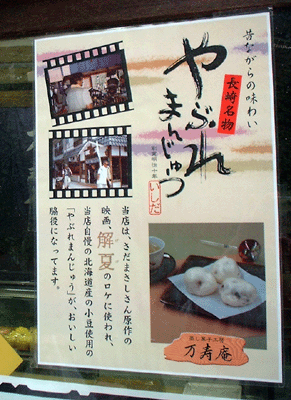 昔ながらの味わい
長崎名物
やぶれ
まんじゅう
いしだ
当店は、さだまさしさん原作の
映画、解夏のロケに使われ、
当店自慢の北海道産の小豆使用の
「やぶれまんじゅう」が、おいしい
脇役になってます。
蒸し菓子工房
万寿庵